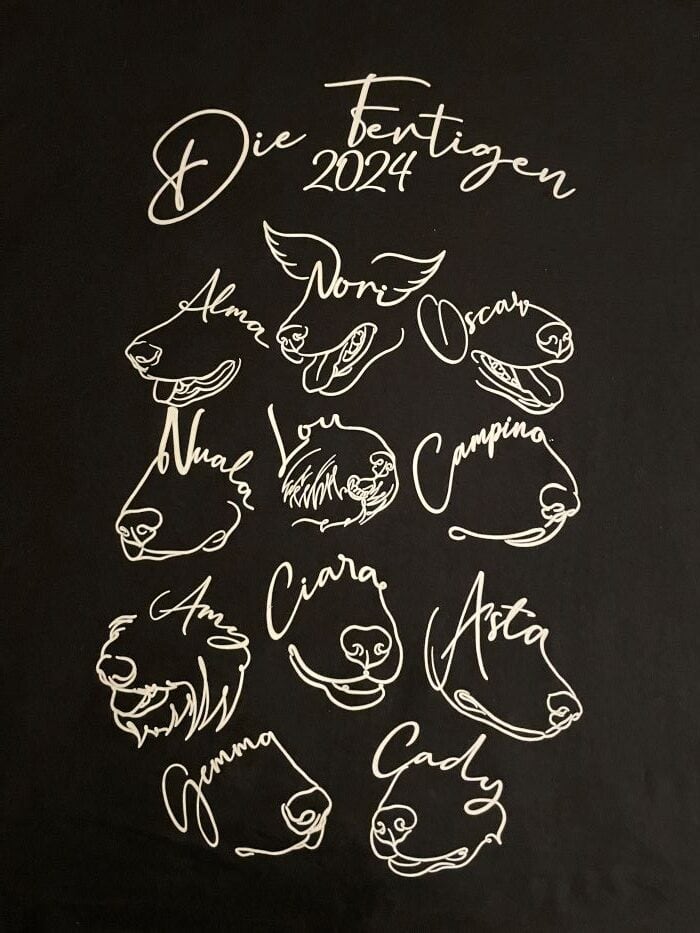 Die Fertigen
2024
Alma Nori Oscar
Nuala Lou Campino
Amy Ciara Asta
Gemma Cady